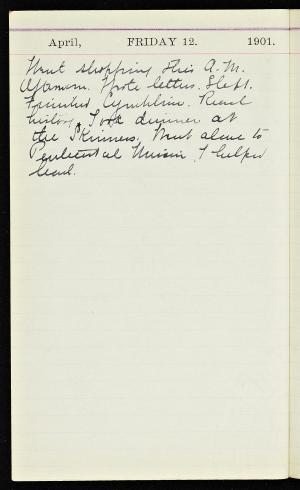 April, FRIDAY 12. 1901.
Went shopping this A.M.
Afternoon. Wrote letters. Slept.
Finished Cymbeline. Read
history. Took dinner at
the Skinners. Went alone to
Mission. I helped
lead.